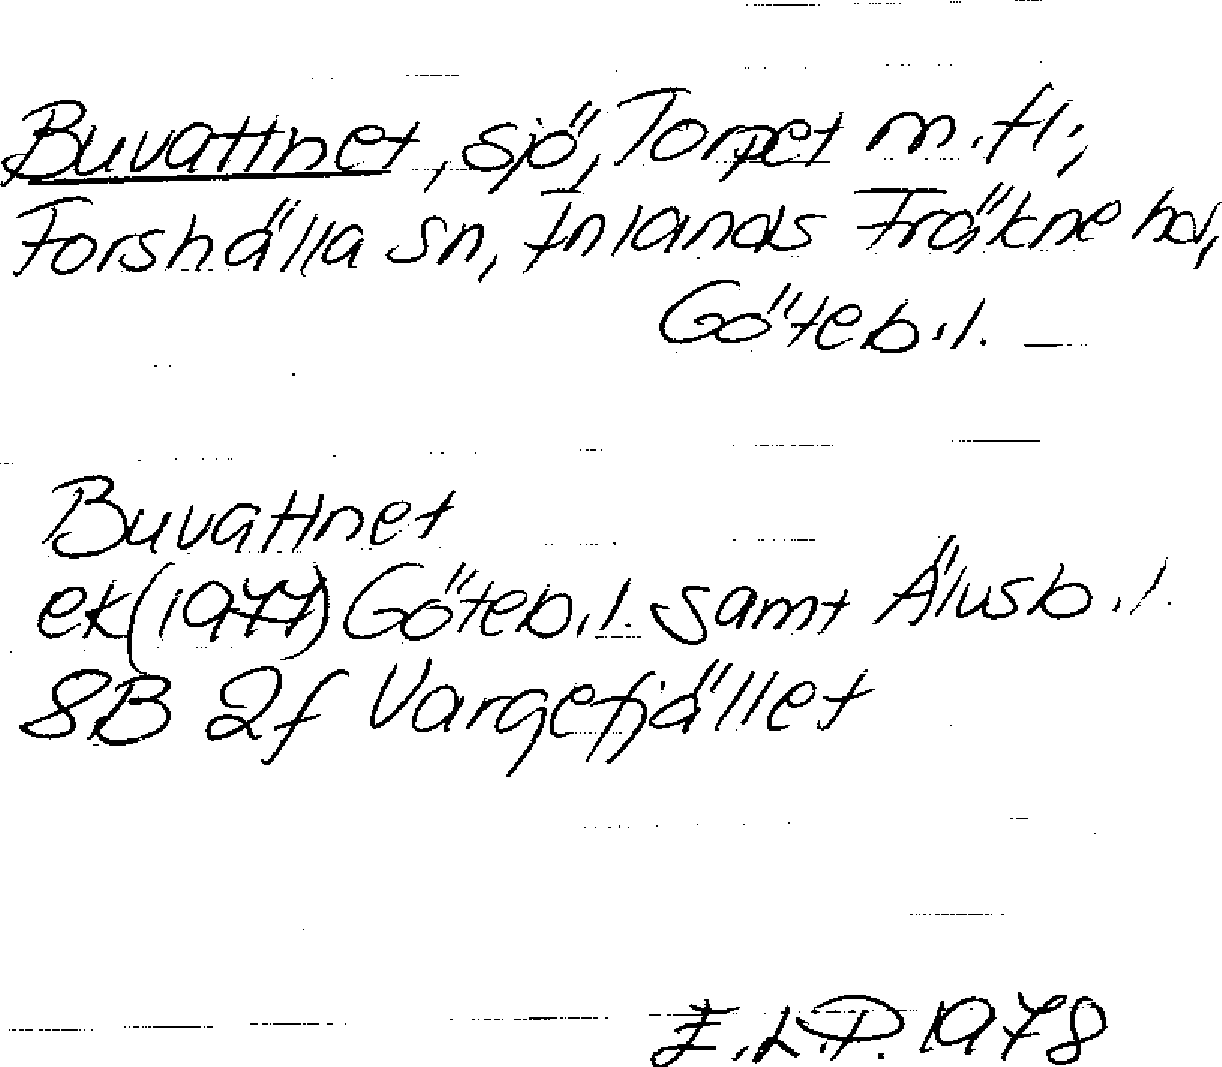 Buvattnet, sjö, Torpet m.fl.,
Forshälla sn, Inlands Fräkne hd,
Göteb.l.
Buvattnet
ek (1977) Göteb.l. samt Älvsb.l.
8B 2f Vargefjället
E.L.P. 1978